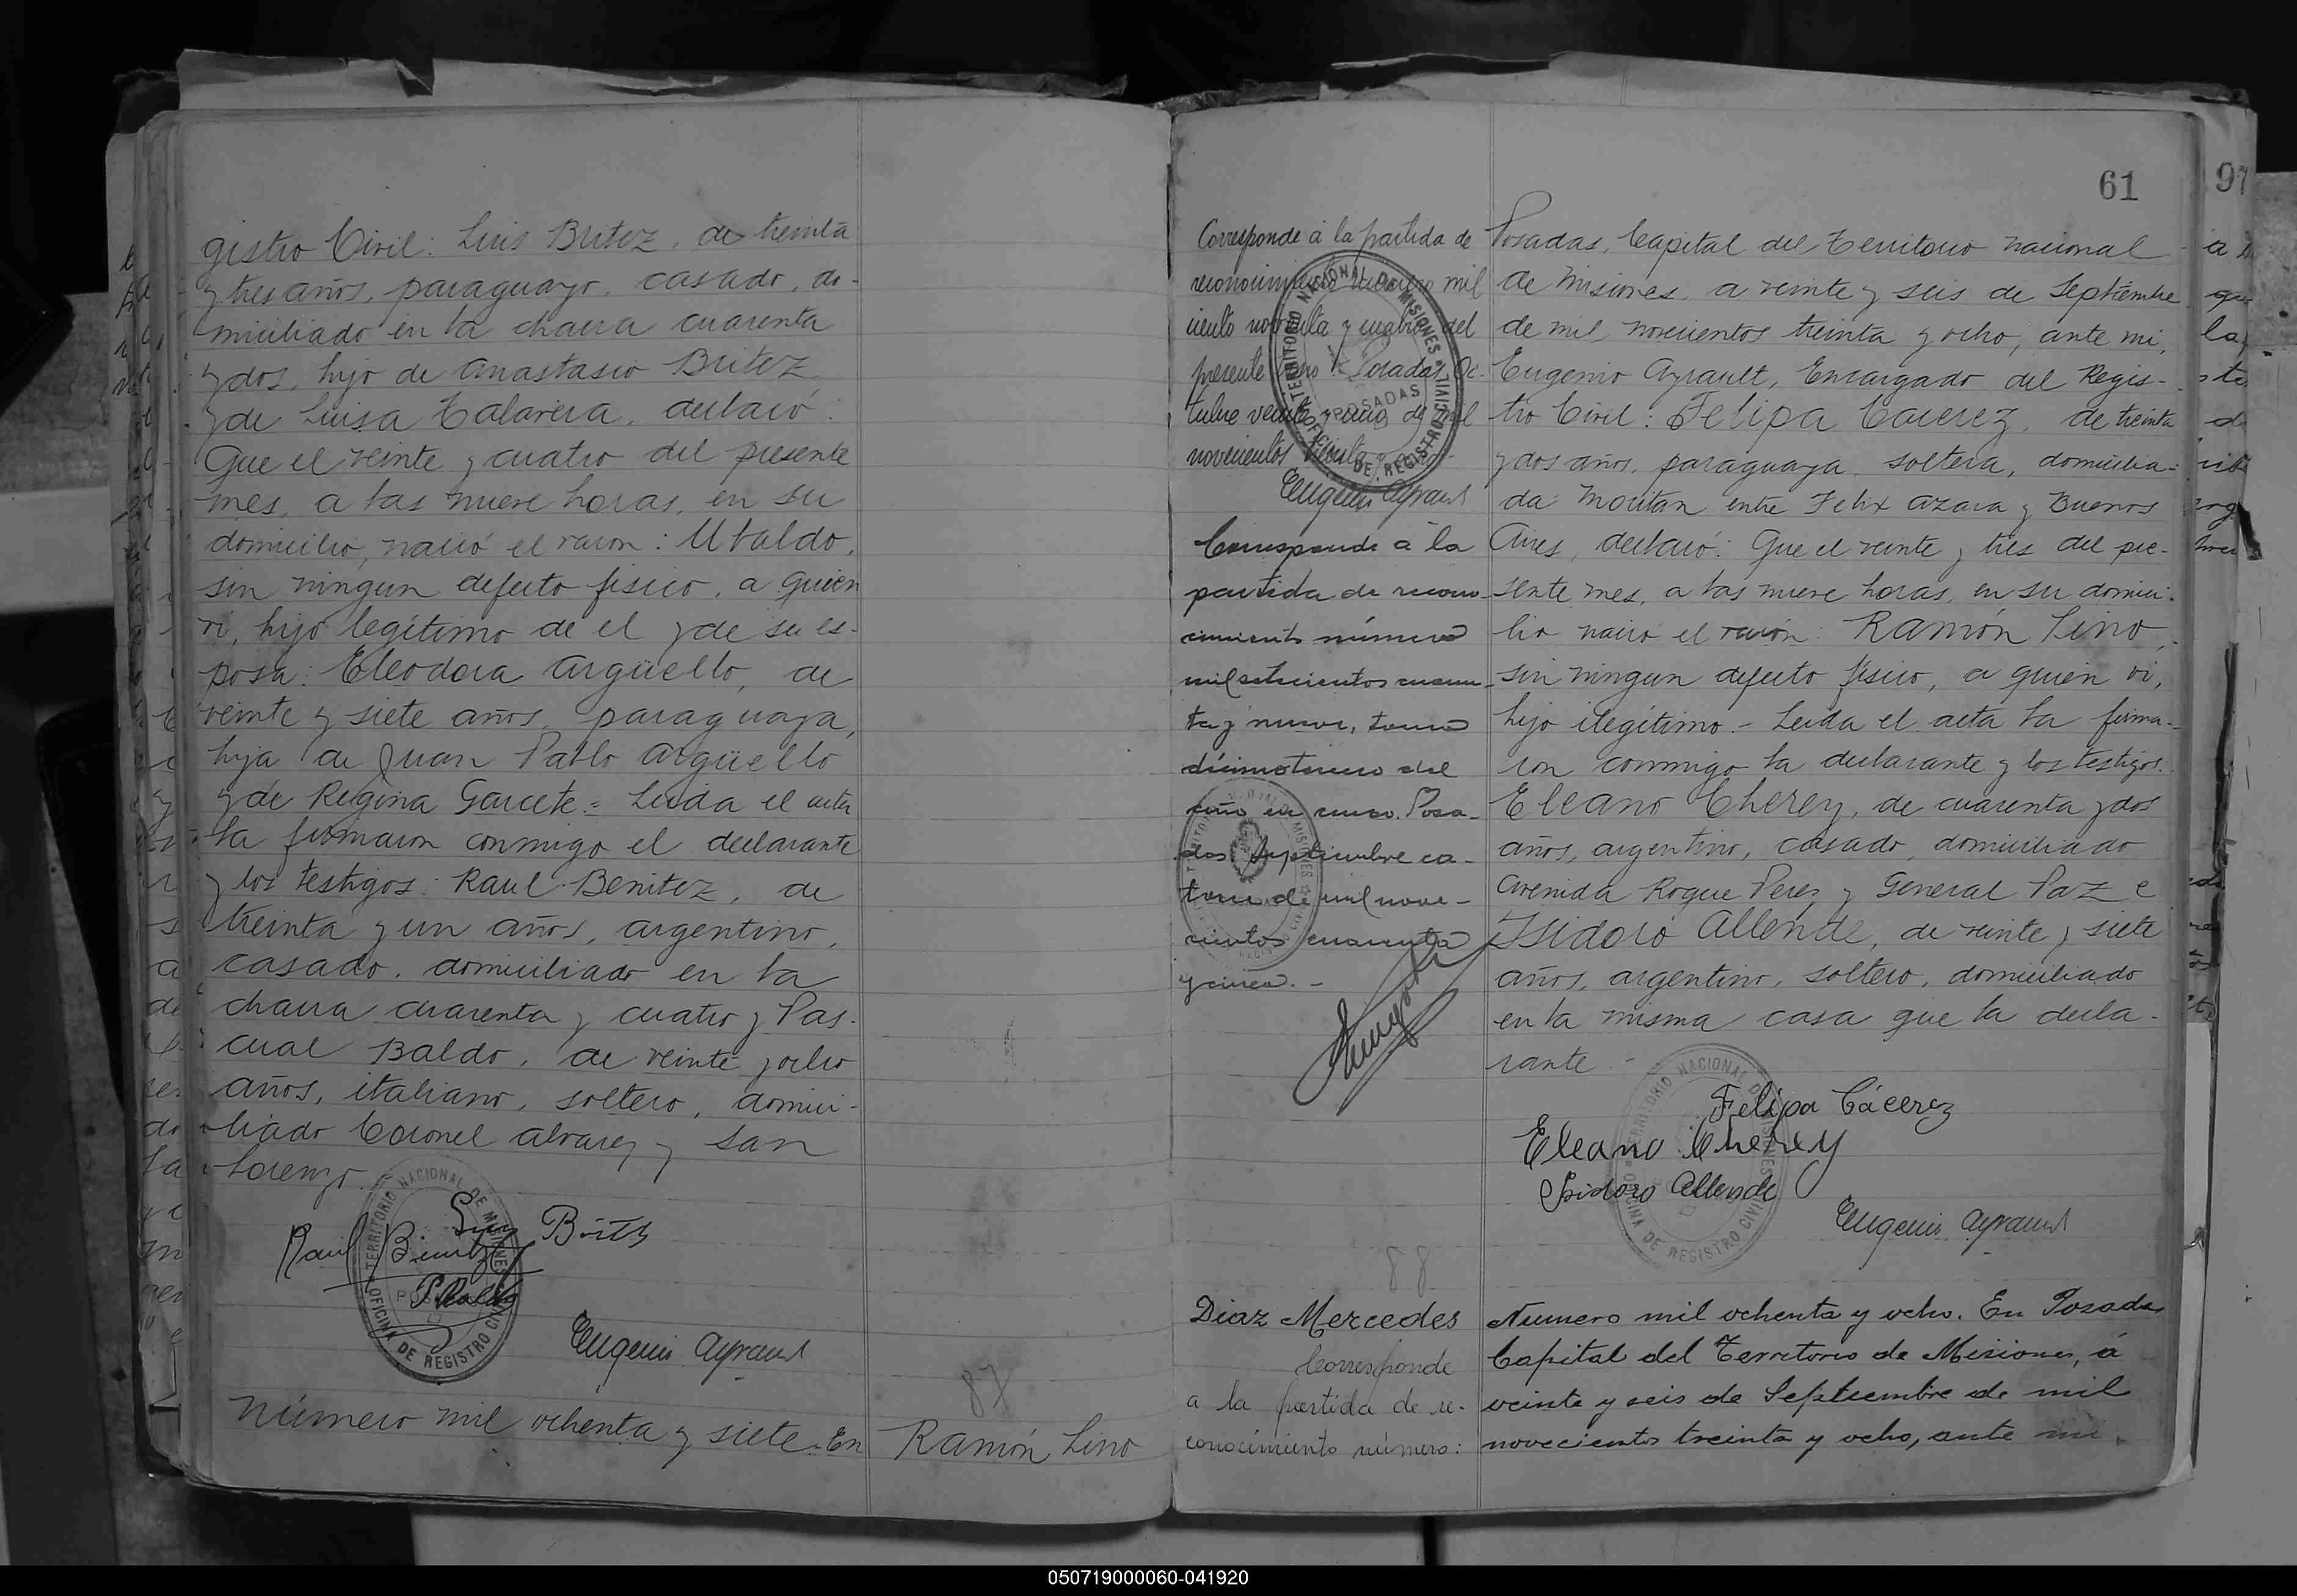 gistro Civil: Luis Britez, de treinta
y tres años, paraguayo, casado, do-
miciliado en la chacra cuarenta
y dos, hijo de Anastasio Britez
y de Luisa Talavera, declaró:
Que el veinte y cuatro del presente
mes, a las nueve horas, en su
domicilio, nació el varon: Ubaldo,
sin ningun defecto fisico, a quien
vi, hijo legítimo de el y de su es-
posa: Eleodora Argüello, de
veinte y siete años, paraguaya,
hija de Juan Pablo Argüello
y de Regina Garcete.= Leida el acta
la firmaron conmigo el declarante
y los testigos: Raul Benitez, de
treinta y un años, argentino,
casado, domiciliado en la
chacra cuarenta y cuatro y Pas-
cual Baldo, de veinte y ocho
años, italiano, soltero, domici-
liado Coronel Alvarez y San
Lorenzo.
Luis Britez
Raul Benitez
P. Baldo
Eugenio Ayrault
TERRITORIO NACIONAL DE MISIONES
OFICINA DE REGISTRO CIVIL
87
Número mil ochenta y siete. En
Ramón Lino
61
97
Corresponde á la partida de
reconocimiento número mil
ciento noventa y cuatro del
presente Posadas, Oc-
tubre veinte y de mil
novecientos treinta y
Eugenio Ayrault
TERRITORIO NACIONAL DE MISIONES
POSADAS
OFICINA DE REGISTRO CIVIL
Corresponde á la
partida de recono-
cimiento número
mil setecientos cuaren-
ta y nueve, tomo
décimotercero del
año en curso. Posa-
das Septiembre ca-
torce de mil nove-
cientos cuarenta
y cinco.-
Posadas, Capital del Territorio nacional
de Misiones, a veinte y seis de Septiembre
de mil novecientos treinta y ocho, ante mi,
Eugenio Ayrault, Encargado del Regis-
tro Civil: Felipa Cacerez, de treinta
y dos años, paraguaya, soltera, domicilia-
da Moritan entre Felix Azara y Buenos
Aires, declaró: Que el veinte y tres del pre-
sente mes, a las nueve horas, en su domici-
lio nació el varón: Ramón Lino,
sin ningun defecto físico, a quien vi,
hijo ilegítimo.- Leida el acta la firma-
ron conmigo la declarante y los testigos:
Eleano Cherey, de cuarenta y dos
años, argentino, casado, domiciliado
Avenida Roque Perez y General Paz e
Isidoro Allende, de veinte y siete
años, argentino, soltero, domiciliado
en la misma casa que la decla-
rante.-
Felipa Cácerez
Eleano Cherey
Isidoro Allende
Eugenio Ayrault
TERRITORIO NACIONAL DE MISIONES
OFICINA DE REGISTRO CIVIL
88
Diaz Mercedes
Corresponde
a la partida de re-
conocimiento número:
Numero mil ochenta y ocho. En Posadas
Capital del Territorio de Misiones, á
veinte y seis de Septiembre de mil
novecientos treinta y ocho, ante mi
050719000060-041920